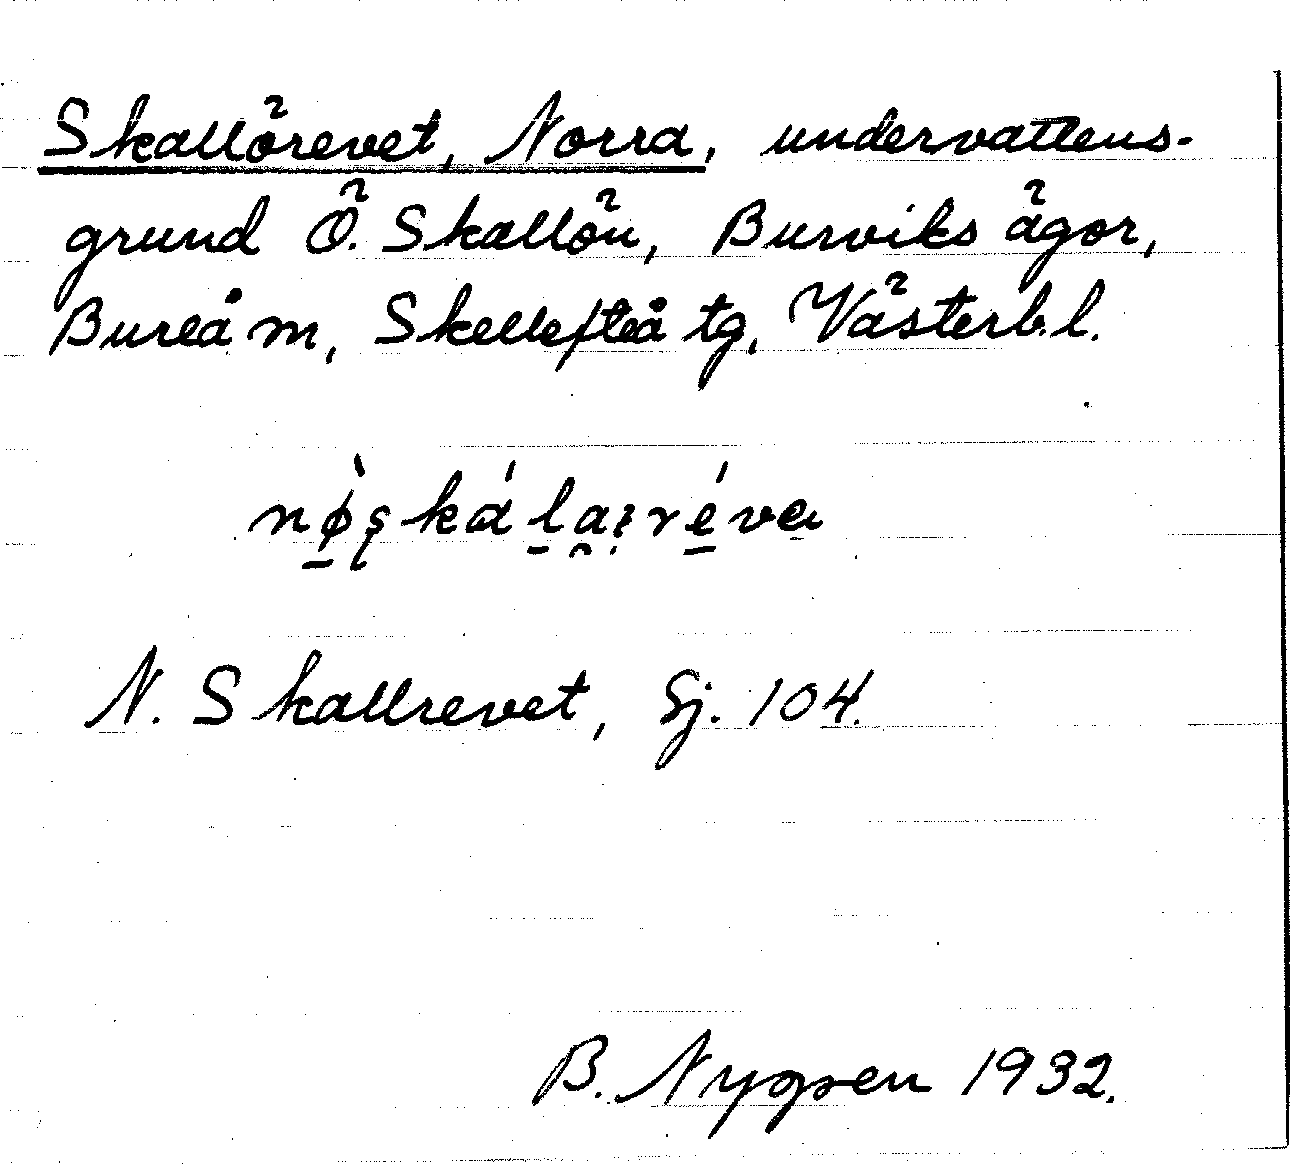 Skallörevet, Norra, undervattens-
grund Ö. Skallön, Burviks ägor,
Bureå m, Skellefteå tg, Västerb. l.
N. Skallrevet, Sj. 104.
B. Nygren 1932.